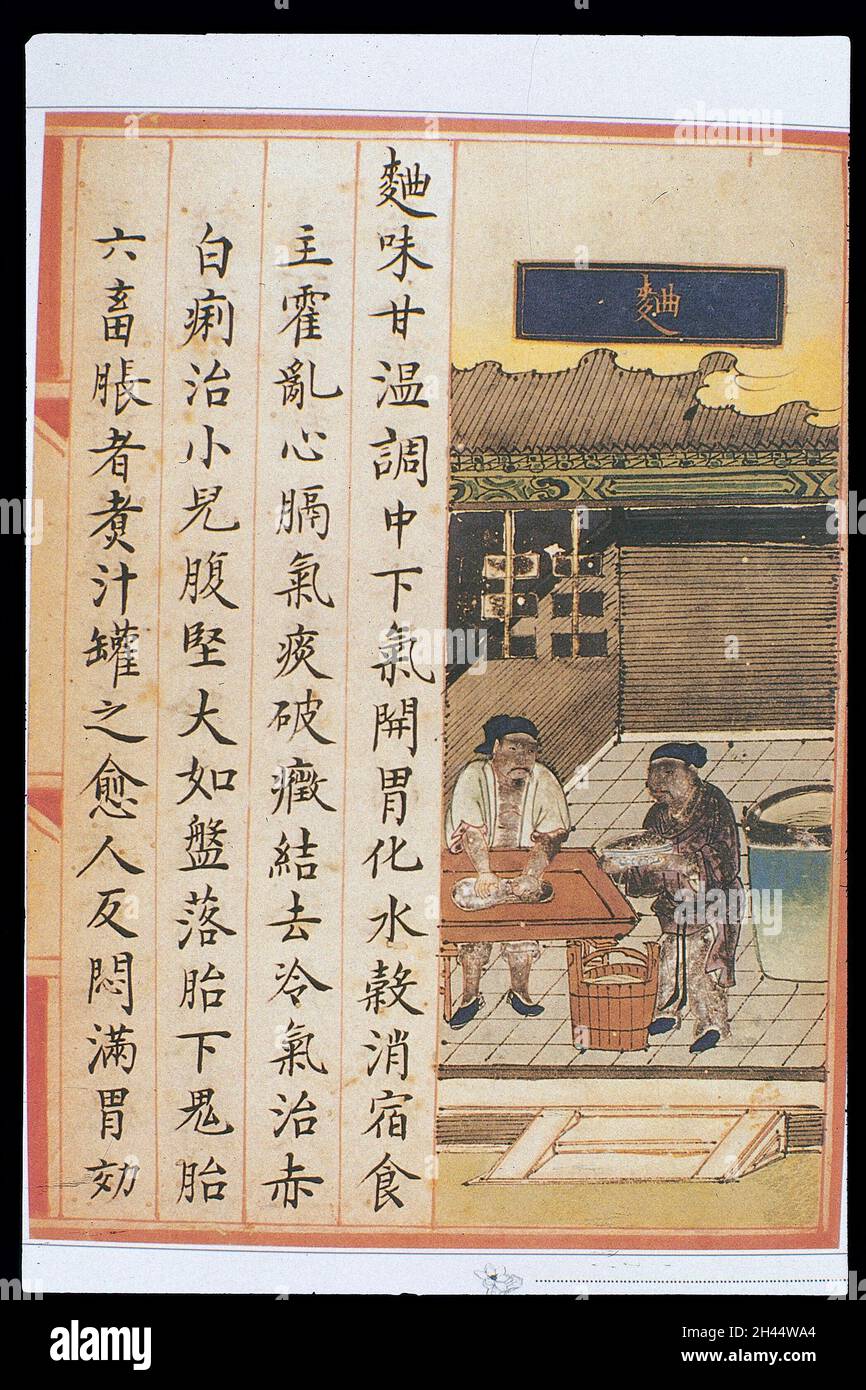 麯
麯味甘温調中下氣開胃化水榖消宿食
主霍亂心膈氣痰破癥結去冷氣治赤
白痢治小兒腹堅大如盤落胎下鬼胎
六畜脹者煑汁罐之愈人反悶滿胃効
alamy
Image ID: 2H44WA4
www.alamy.com